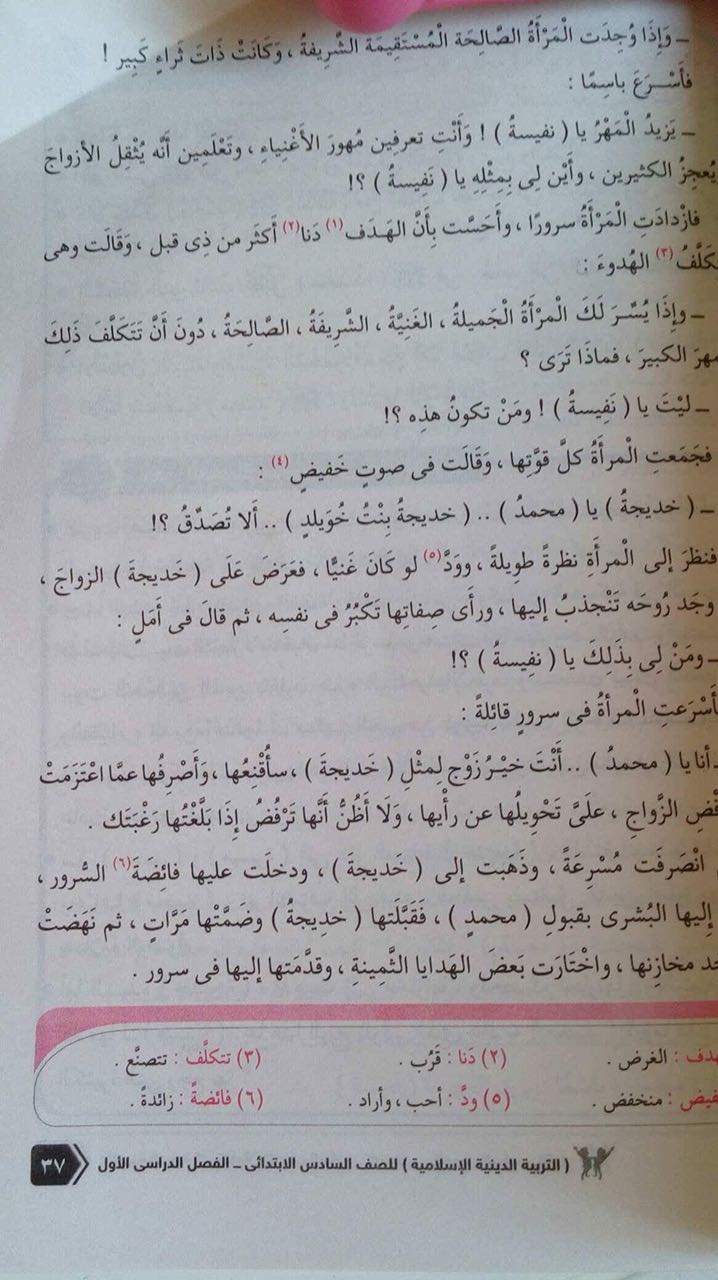 ـ وَإِذَا وُجِدَت الْمَرْأَةُ الصَّالِحَة الْمُسْتَقِيمَة الشَّرِيفةُ ، وَكَانَتْ ذَاتَ ثَراءٍ كَبِير !
فأَسْـرَعَ باسِمًا :
ـ يَزيدُ الْمَهْرُ يا ( نفيسةُ ) ! وَأَنْتِ تعرفين مُهورَ الأَغْنِياءِ ، وتَعْلَمِين أَنَّه يُثْقِلُ الأزواجَ
يُعجِزُ الكثيرين ، وأَيْن لِى بِمِثْلِهِ يا ( نَفِيسةُ ) ؟!
فازْدادَتِ الْمَرْأَةُ سرورًا ، وأَحَسَّت بِأَنَّ الهَـدَف (١) دَنا (٢) أَكثَر من ذِى قبل ، وَقَالَت وهى
تَكَلَّفُ (٣) الهُدوءَ :
ـ وإِذَا يُسِّـرَ لَكَ الْمرْأَةُ الْجَميلةُ ، الغَنِيَّةُ ، الشَّرِيفَةُ ، الصَّالِحَةُ ، دُونَ أَنْ تَتَكَلَّفَ ذَلِكَ
المهرَ الكبيرَ ، فماذَا تَرَى ؟
ـ ليْتَ يا ( نَفِيسةُ ) ! ومَنْ تكونُ هذِه ؟!
فجَمَعتِ الْمرأَةُ كلَّ قوَّتِها ، وَقَالَت فى صوتٍ خَفيضٍ (٤) :
ـ ( خديجةُ ) يا ( محمدُ ) .. ( خديجةُ بِنْتُ خُوَيلدٍ ) .. أَلا تُصَدِّقُ ؟!
فنظرَ إلى الْمرأَةِ نظرةً طوِيلةً ، ووَدَّ (٥) لو كَانَ غَنيًّا ، فعَرَضَ عَلَى ( خَدِيجةَ ) الزواجَ ،
وجَد رُوحَه تَنْجذبُ إليها ، ورأَى صِفاتِها تَكْبُرُ فى نفسِه ، ثم قالَ فى أَمَلٍ :
ـ ومَنْ لِى بِذَلِكَ يا ( نفيسةُ ) ؟!
فأَسْرَعتِ المرأةُ فى سرورٍ قائِلةً :
ـ أنا يا ( محمدُ ) .. أَنْتَ خيْـرُ زَوْجٍ لِمثْلِ ( خَديجةَ ) ، سأُقْنِعُها ، وَأَصْرِفُها عمَّا اعْتَزَمَتْ
رفْضِ الزَّواجِ ، علَىَّ تَحْوِيلُها عن رأْيِها ، وَلَا أَظُنُّ أَنَّها تَرْفُضُ إِذَا بَلَّغْتُها رَغْبَتَك .
انْصَرَفَت مُسْرِعَةً ، وذَهَبت إلى ( خَديجةَ ) ، ودخلَت عليها فائِضَةَ (٦) السُّرور ،
إليها البُشرى بقبولِ ( محمدٍ ) ، فَقَبَّلَتها ( خدِيجةُ ) وضَمَّتْها مَرَّاتٍ ، ثم نَهَضَتْ
أحد مخازِنها ، واخْتَارَت بَعضَ الهَدايا الثَّمِينةِ ، وقدَّمَتها إليها فى سرور .
الهدف : الغرض . (٢) دَنا : قَرُب . (٣) تتكلَّف : تتصنَّع .
خفيض : منخفض . (٥) ودَّ : أحب ، وأراد . (٦) فائضةً : زائدةً .
( التربية الدينية الإسلامية ) للصف السادس الابتدائى ـ الفصل الدراسى الأول
٣٧